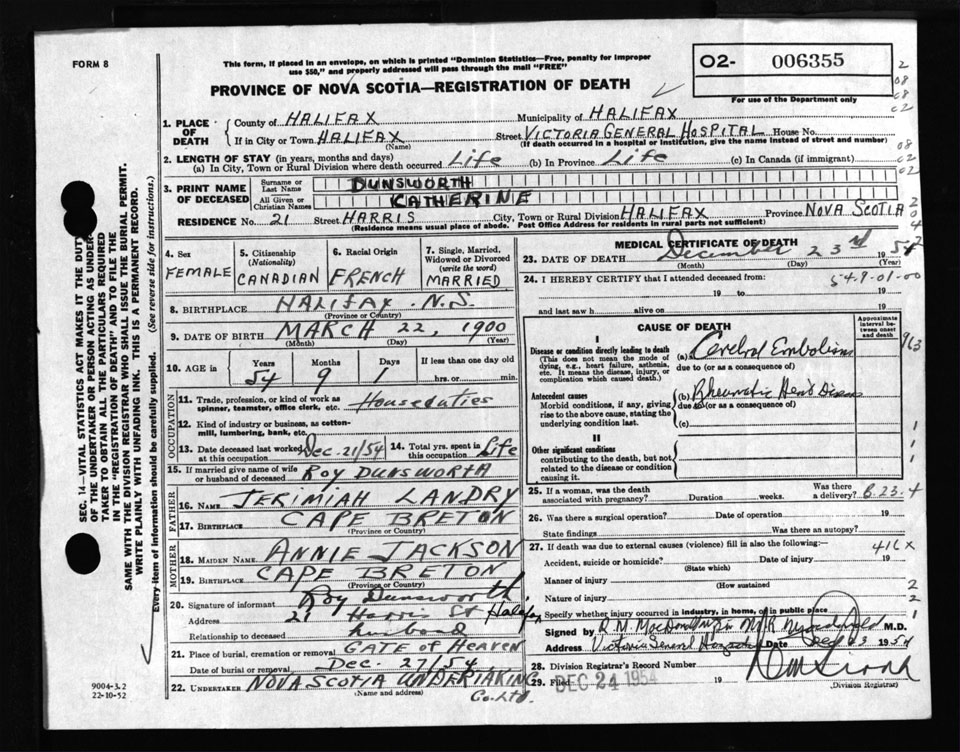 FORM 8
This form, if placed in an envelope, on which is printed "Dominion Statistics—Free, penalty for improper
use $50," and properly addressed will pass through the mail "FREE"
PROVINCE OF NOVA SCOTIA—REGISTRATION OF DEATH
O2- 006355
For use of the Department only
2
08
08
02
1. PLACE OF DEATH
County of HALIFAX Municipality of HALIFAX
If in City or Town HALIFAX Street VICTORIA GENERAL HOSPITAL House No.
(Name) (If death occurred in a hospital or institution, give the name instead of street and number)
08
02
02
2. LENGTH OF STAY (in years, months and days)
(a) In City, Town or Rural Division where death occurred Life (b) In Province Life (c) In Canada (if immigrant)
3. PRINT NAME OF DECEASED
Surname or Last Name DUNSWORTH
All Given or Christian Names CATHERINE
RESIDENCE No. 21 Street HARRIS City, Town or Rural Division HALIFAX Province NOVA SCOTIA
(Residence means usual place of abode. Post Office Address for residents in rural parts not sufficient)
2
0
4
2
4. Sex FEMALE
5. Citizenship (Nationality) CANADIAN
6. Racial Origin FRENCH
7. Single, Married, Widowed or Divorced (write the word) MARRIED
8. BIRTHPLACE HALIFAX N.S.
(Province or Country)
9. DATE OF BIRTH MARCH 22, 1900
(Month) (Day) (Year)
10. AGE in Years Months Days If less than one day old
54 9 1 hrs. or min.
OCCUPATION
11. Trade, profession, or kind of work as spinner, teamster, office clerk, etc. Houseduties
12. Kind of industry or business, as cotton-mill, lumbering, bank, etc.
13. Date deceased last worked at this occupation Dec. 21/54 14. Total yrs. spent in this occupation Life
15. If married give name of wife or husband of deceased ROY DUNSWORTH
FATHER
16. NAME JERIMIAH LANDRY
17. BIRTHPLACE CAPE BRETON
(Province or Country)
MOTHER
18. MAIDEN NAME ANNIE JACKSON
19. BIRTHPLACE CAPE BRETON
(Province or Country)
20. Signature of informant Roy Dunsworth
Address 21 Harris St Halifax
Relationship to deceased husband
21. Place of burial, cremation or removal GATE OF HEAVEN
Date of burial or removal Dec. 27/54
22. UNDERTAKER NOVA SCOTIA UNDERTAKING
(Name and address) Co. Ltd.
MEDICAL CERTIFICATE OF DEATH
23. DATE OF DEATH December 23rd 1954
(Month) (Day) (Year)
24. I HEREBY CERTIFY that I attended deceased from:
549-01-00
19 to 19
and last saw h alive on 19
CAUSE OF DEATH
Approximate interval between onset and death
I
Disease or condition directly leading to death (a) Cerebral Embolism
(This does not mean the mode of dying, e.g., heart failure, asthenia, etc. It means the disease, injury, or complication which caused death.)
due to (or as a consequence of)
Antecedent causes (b) Rheumatic Heart Disease
Morbid conditions, if any, giving rise to the above cause, stating the underlying condition last.
due to (or as a consequence of)
(c)
II
Other significant conditions
contributing to the death, but not related to the disease or condition causing it.
1
1
1
25. If a woman, was the death associated with pregnancy? Duration weeks. Was there a delivery?
26. Was there a surgical operation? Date of operation 19
State findings Was there an autopsy?
27. If death was due to external causes (violence) fill in also the following:— 416 X
Accident, suicide or homicide? Date of injury 19
(State which)
Manner of injury
(How sustained)
2
Nature of injury
2
Specify whether injury occurred in industry, in home, or in public place
1
Signed by M.D.
Address Victoria General Hospital Date Dec 23 1954
28. Division Registrar's Record Number
29. Filed DEC 24 1954 19
(Division Registrar)
SEC. 14—VITAL STATISTICS ACT MAKES IT THE DUTY
OF THE UNDERTAKER OR PERSON ACTING AS UNDER-
TAKER TO OBTAIN ALL THE PARTICULARS REQUIRED
IN THE "REGISTRATION OF DEATH" AND TO FILE THE
SAME WITH THE DIVISION REGISTRAR WHO SHALL ISSUE THE BURIAL PERMIT.
WRITE PLAINLY WITH UNFADING INK. THIS IS A PERMANENT RECORD.
Every item of information should be carefully supplied. (See reverse side for instructions.)
9004-3.2
22-10-52